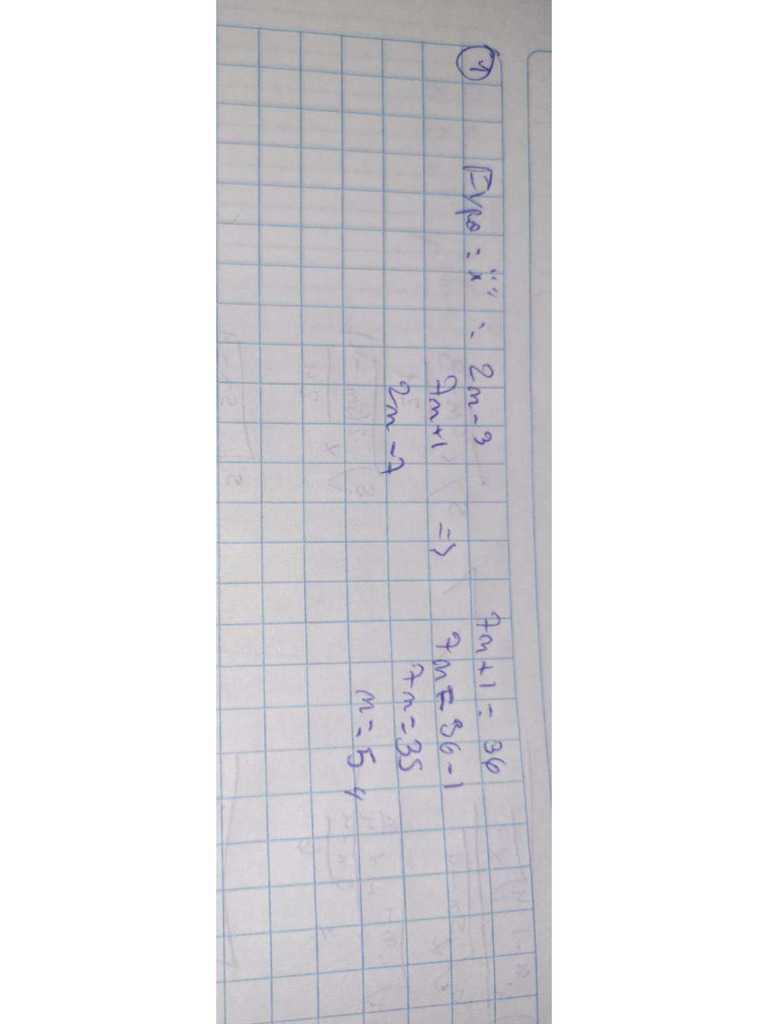 1
Expo = "x" = 2m-3
7m+1 => 7m+1 = 36
2m-7 7m = 36-1
7m = 35
m = 5